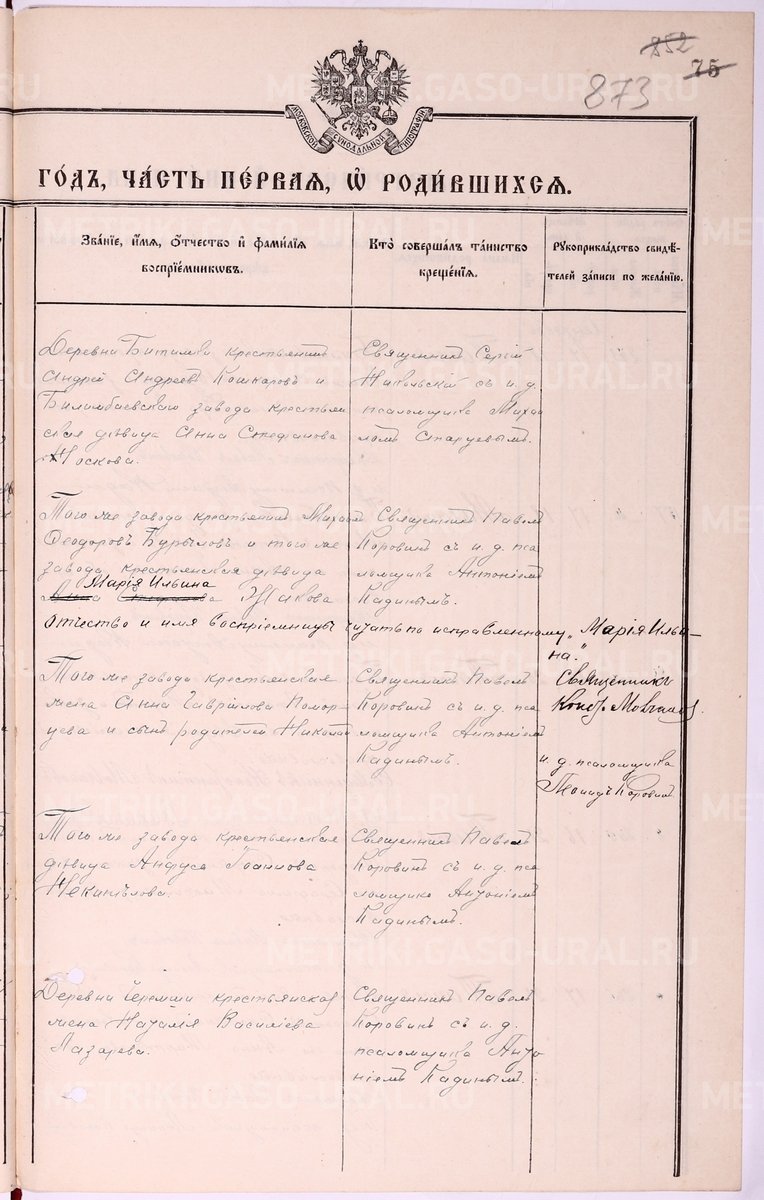 852
75
873
МОСКОВСКОЙ СѴНОДАЛЬНОЙ ТИПОГРАФІИ
ГО́ДЪ, ЧА́СТЬ ПЕ́РВАЯ, Ѡ҆ РОДИ́ВШИХСЯ.
Зва́ніе, и҆́мя, ѻ҆́тчество и҆ фами́лія
воспріе́мникѡвъ.
Кто̀ соверша́лъ та́инство
креще́нія.
Рꙋкоприкла́дство свидѣ́-
телей за́писи по жела́нію.
Деревни Битимки крестьянинъ
Андрей Андреевъ Кошкаровъ и
Билимбаевскаго завода крестьян
ская дѣвица Анна Стефанова
Носкова.
Священникъ Сергій
Никольскій съ и. д.
псаломщика Михаи
ломъ Старцевымъ.
Того же завода крестьянинъ Михаилъ
Ѳеодоровъ Бурыловъ и того же
завода крестьянская дѣвица
Марія Ильина
Анна Стефанова Жакова
Священникъ Павелъ
Коровинъ съ и. д. пса
ломщика Антоніемъ
Кадинымъ.
Отчество и имя воспріемницы читать по исправленному „Марія Ильи-
на."
Священникъ
и. д. псаломщика
Леонидъ Коровинъ
Того же завода крестьянская
жена Анна Гавріилова Помор-
цева и сынъ родителей Николай
Священникъ Павелъ
Коровинъ съ и. д. пса
ломщика Антоніемъ
Кадинымъ.
Того же завода крестьянская
дѣвица Анфуса Іоаннова
Некипѣлова.
Священникъ Павелъ
Коровинъ съ и. д. пса
ломщика Антоніемъ
Кадинымъ.
Деревни Черемши крестьянская
жена Наталія Василіева
Лазарева.
Священникъ Павелъ
Коровинъ съ и. д.
псаломщика Анто
ніемъ Кадинымъ.
METRIKI.GASO-URAL.RU